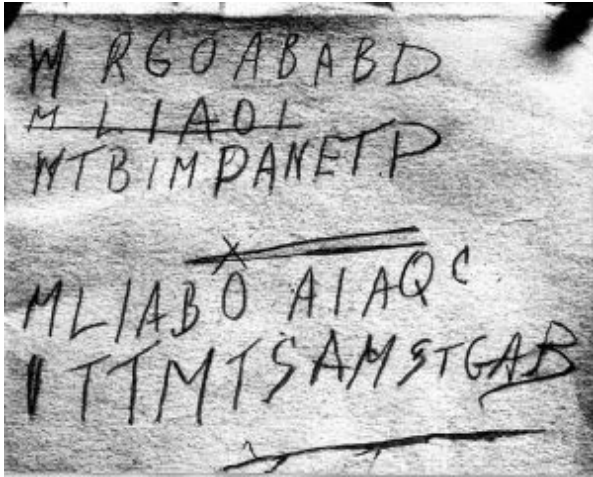 W R G O A B A B D
M L I A O I
W T B I M P A N E T P
M L I A B O A I A Q C
I T T M T S A M S T G A B